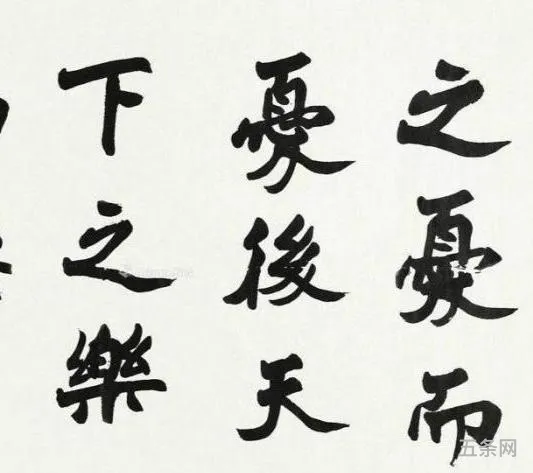 之憂而
憂後天
下之樂
五条网